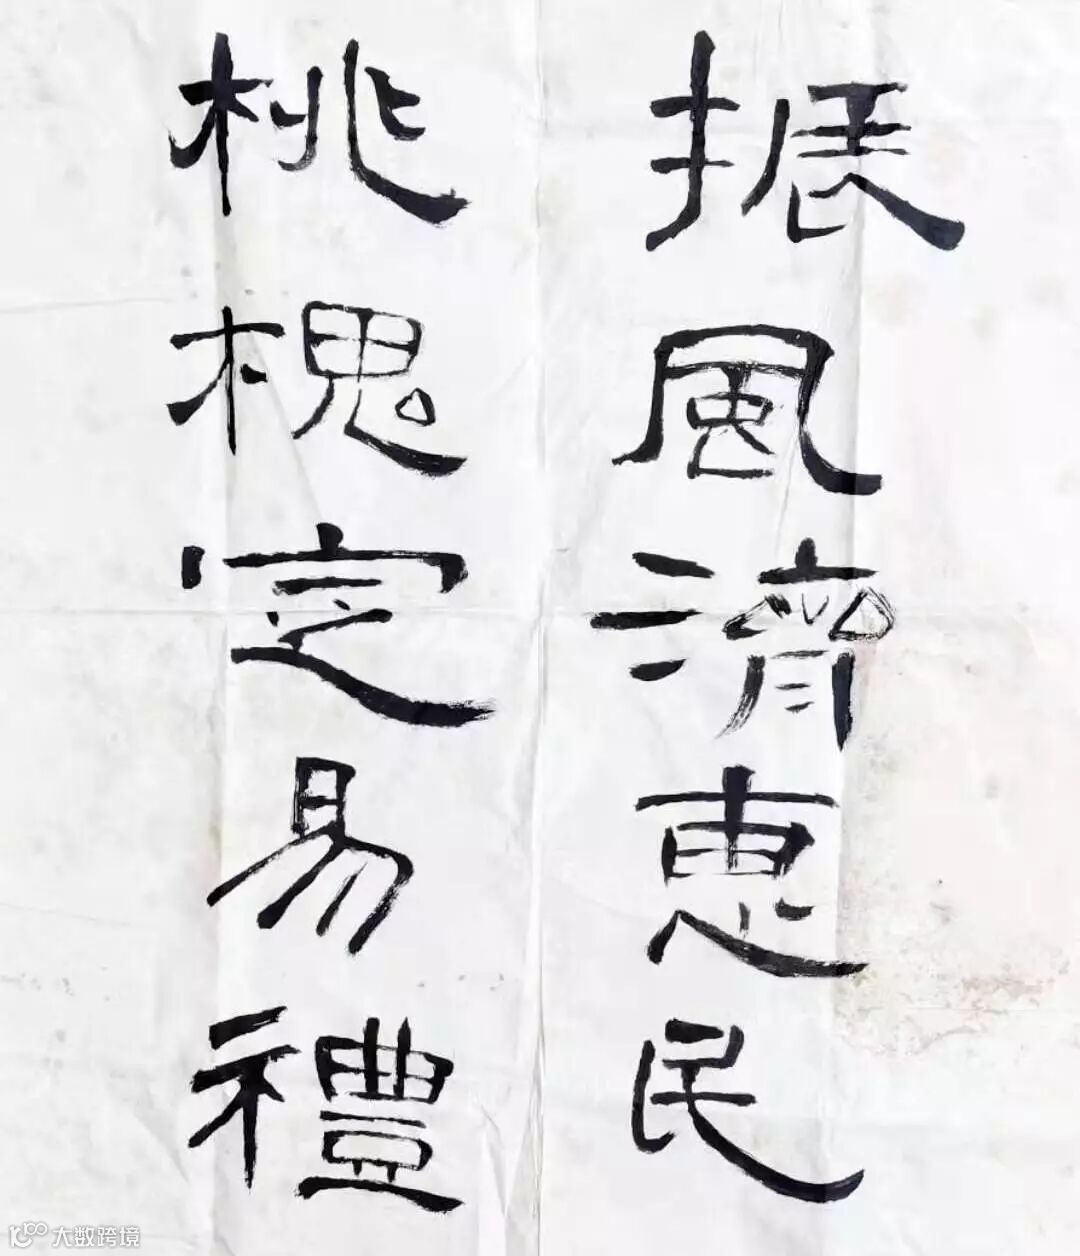 振風濟惠民
桃槐定易禮
大数跨境